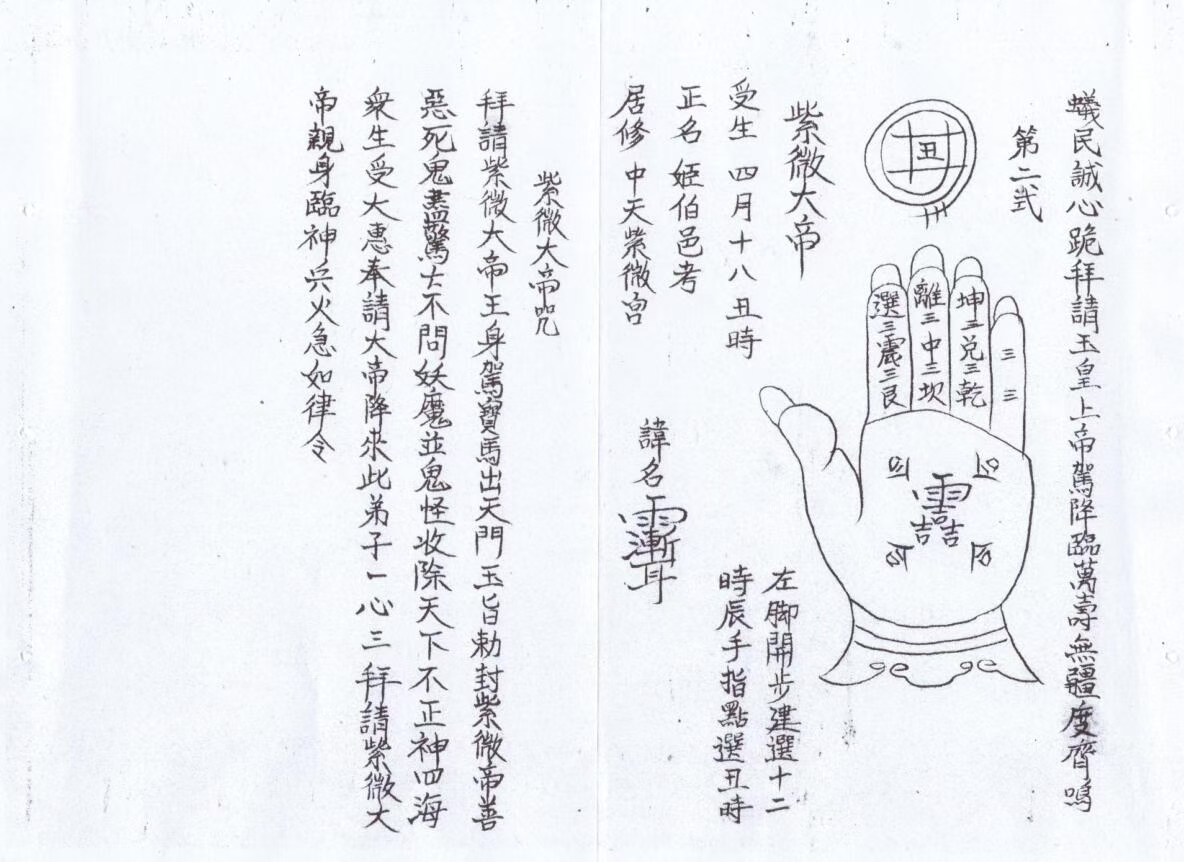 蟻民誠心跪拜請玉皇上帝駕降臨萬壽無疆度齊嗚
第二弍
丑
三三
坤三兌三乾
離三中三坎
選三震三艮
左脚開步建選十二
時辰手指點選丑時
紫微大帝
受生四月十八丑時
正名姬伯邑考
居修中天紫微宮
諱名
紫微大帝咒
拜請紫微大帝王身駕寶馬出天門玉旨勅封紫微帝善
惡死鬼盡驚亡不問妖魔並鬼怪收除天下不正神四海
衆生受大惠奉請大帝降來此弟子一心三拜請紫微大
帝親身臨神兵火急如律令